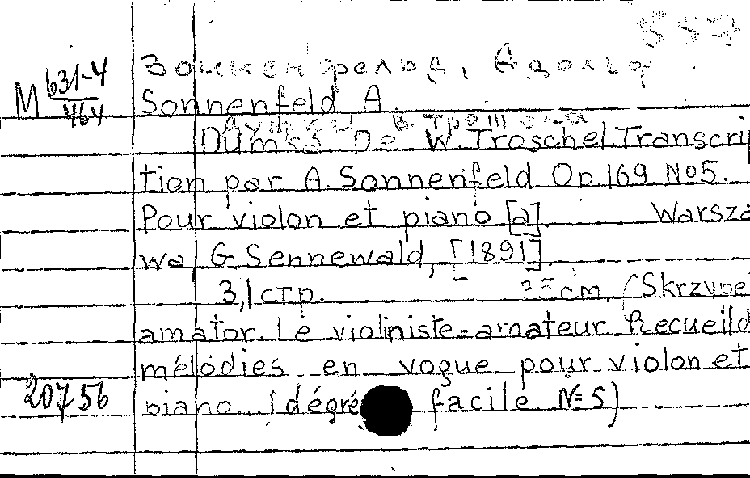 557
Зонненфельд, Адольф
M 631-4
464
Sonnenfeld A.
Dumss De W. Troschel Transcrip
tion par A. Sonnenfeld Op. 169 No5.
Pour violon et piano [a]. Warsza
wa, G. Sennewald, [1891]
3,1 стр. cm. (Skrzypek
amator. Le violiniste-amateur. Recueil d
mélodies en vogue pour violon et
20756
piano (dégré facile N=5)